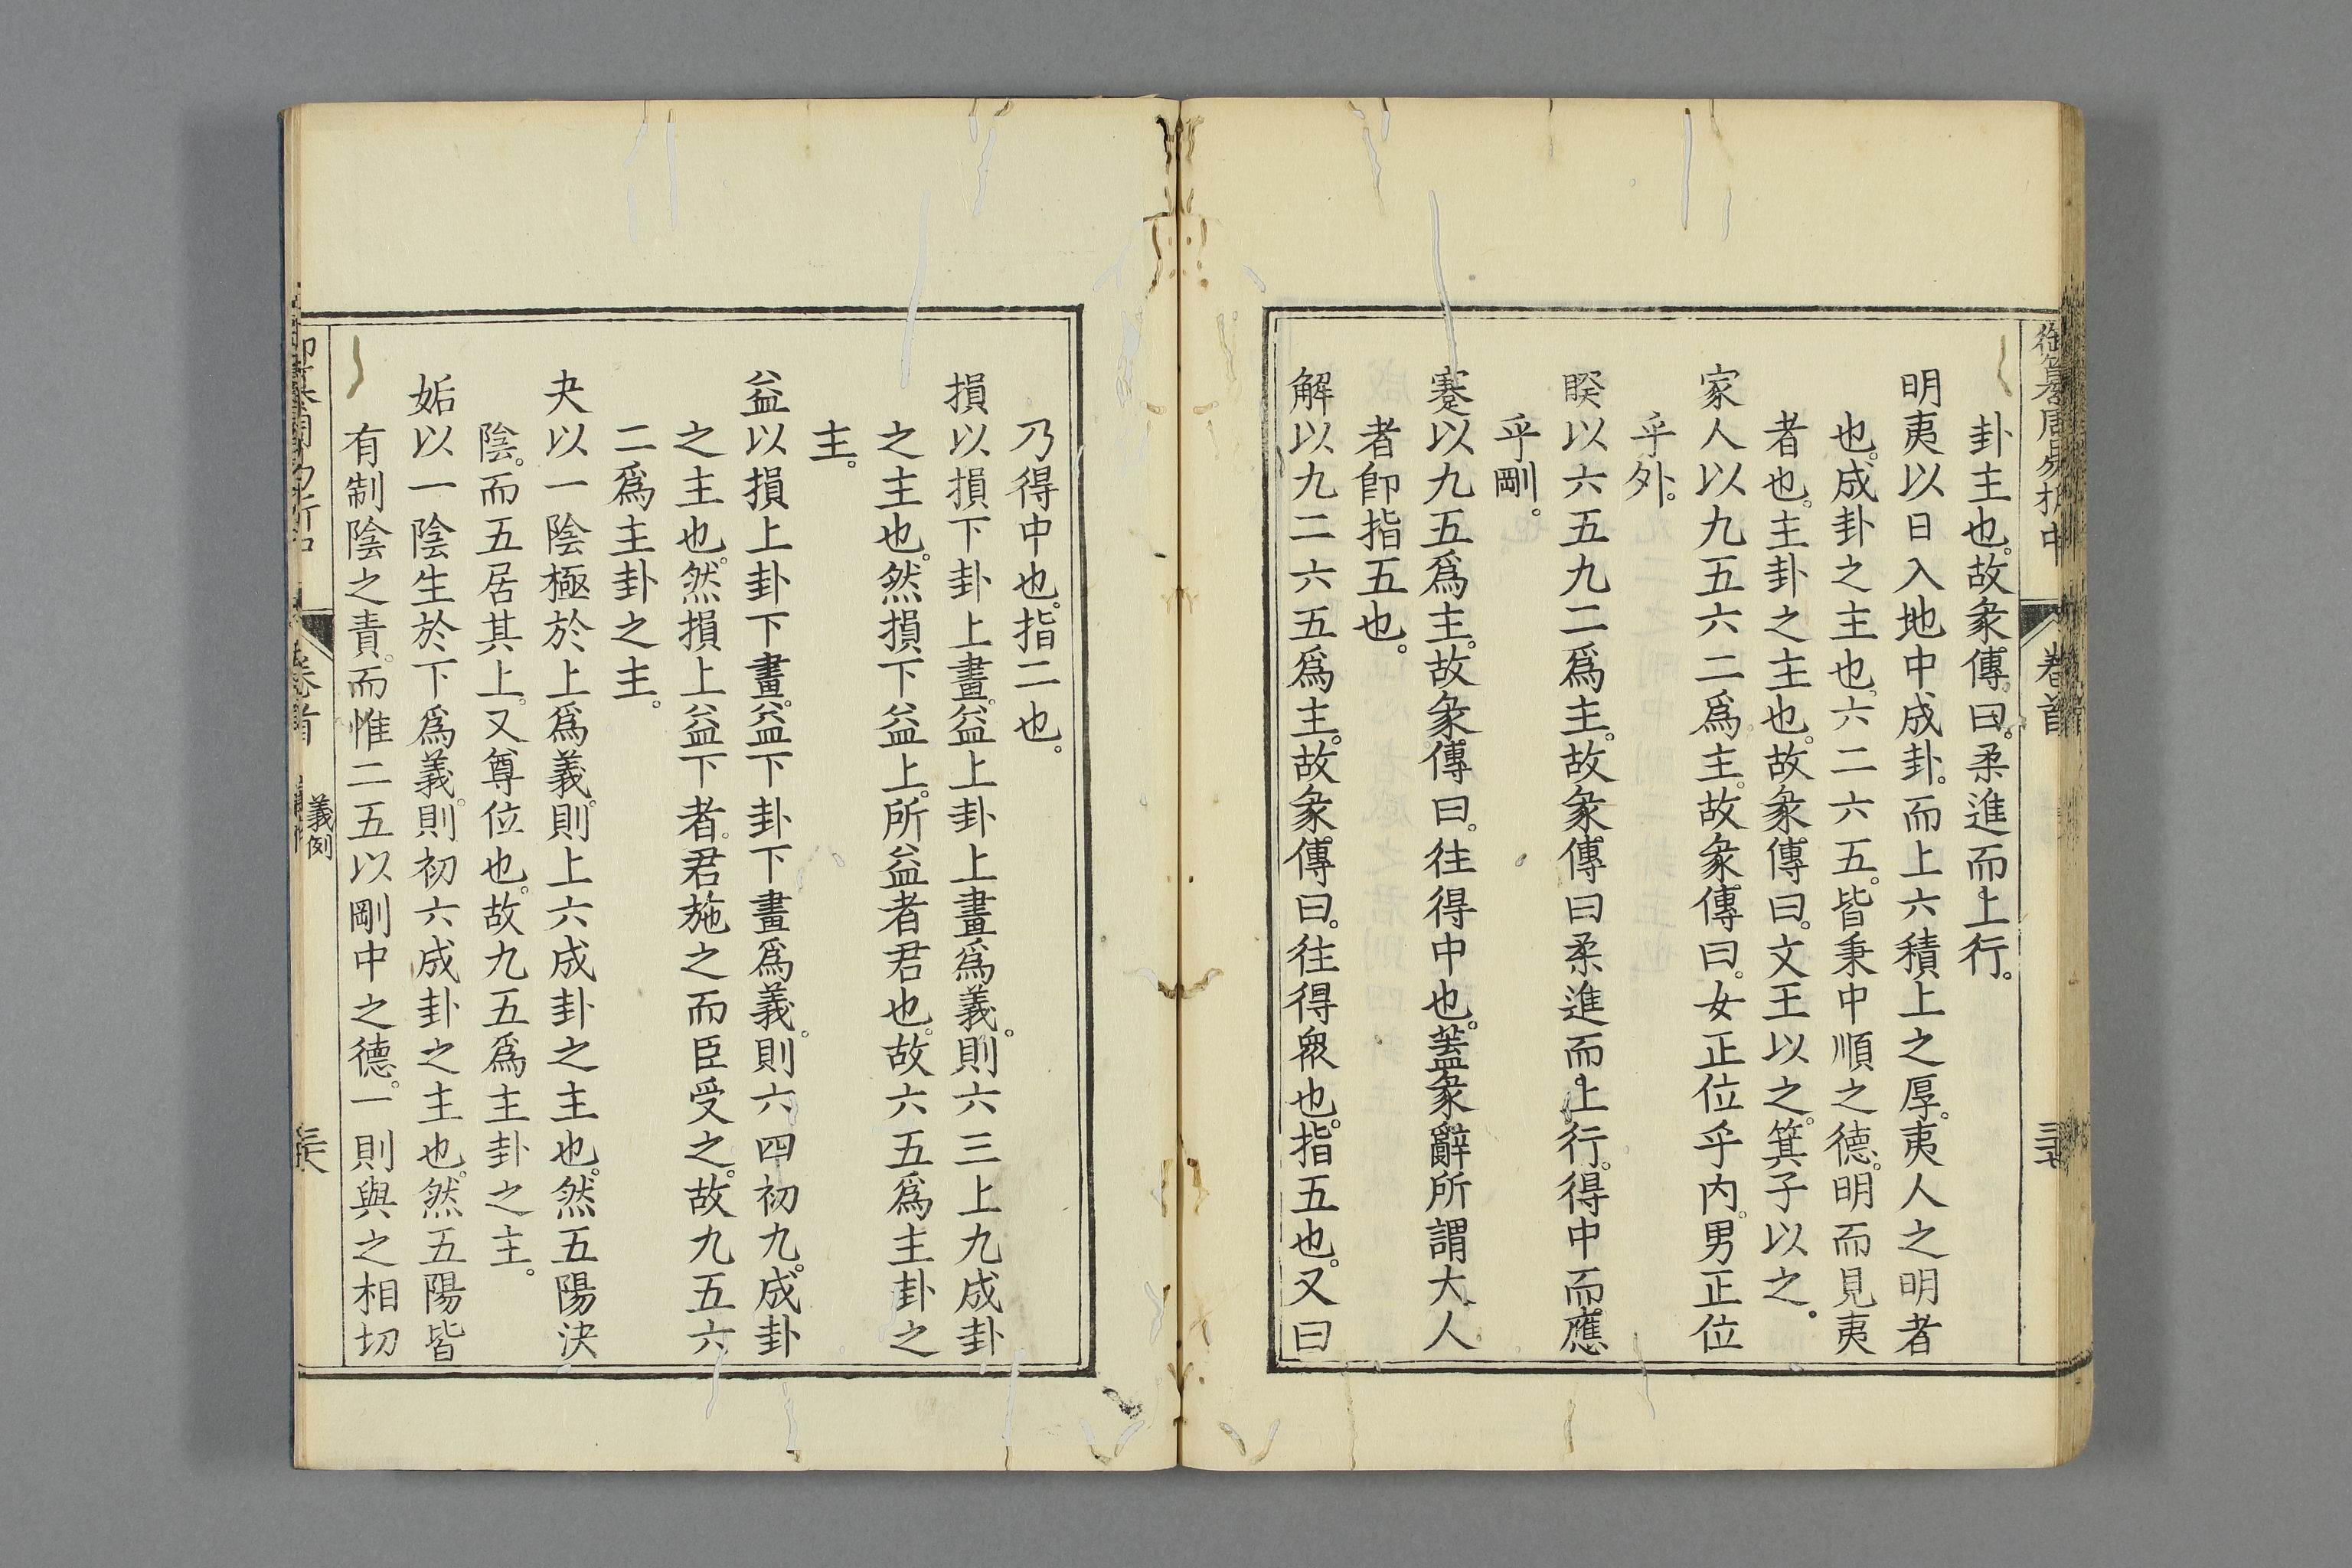 御纂周易折中 卷首 三七
卦主也。故彖傳曰。柔進而上行。
明夷以日入地中成卦。而上六積上之厚。夷人之明者
也。成卦之主也。六二六五。皆秉中順之德。明而見夷
者也。主卦之主也。故彖傳曰。文王以之。箕子以之。
家人以九五六二爲主。故彖傳曰。女正位乎内。男正位
乎外。
睽以六五九二爲主。故彖傳曰柔進而上行。得中而應
乎剛。
蹇以九五爲主。故彖傳曰。往得中也。蓋彖辭所謂大人
者卽指五也。
解以九二六五爲主。故彖傳曰。往得衆也。指五也。又曰
乃得中也。指二也。
損以損下卦上畫。益上卦上畫爲義。則六三上九成卦
之主也。然損下益上。所益者君也。故六五爲主卦之
主。
益以損上卦下畫。益下卦下畫爲義。則六四初九。成卦
之主也。然損上益下者。君施之而臣受之。故九五六
二爲主卦之主。
夬以一陰極於上爲義。則上六成卦之主也。然五陽決
陰。而五居其上。又尊位也。故九五爲主卦之主。
姤以一陰生於下爲義。則初六成卦之主也。然五陽皆
有制陰之責。而惟二五以剛中之德。一則與之相切
卷首 義例